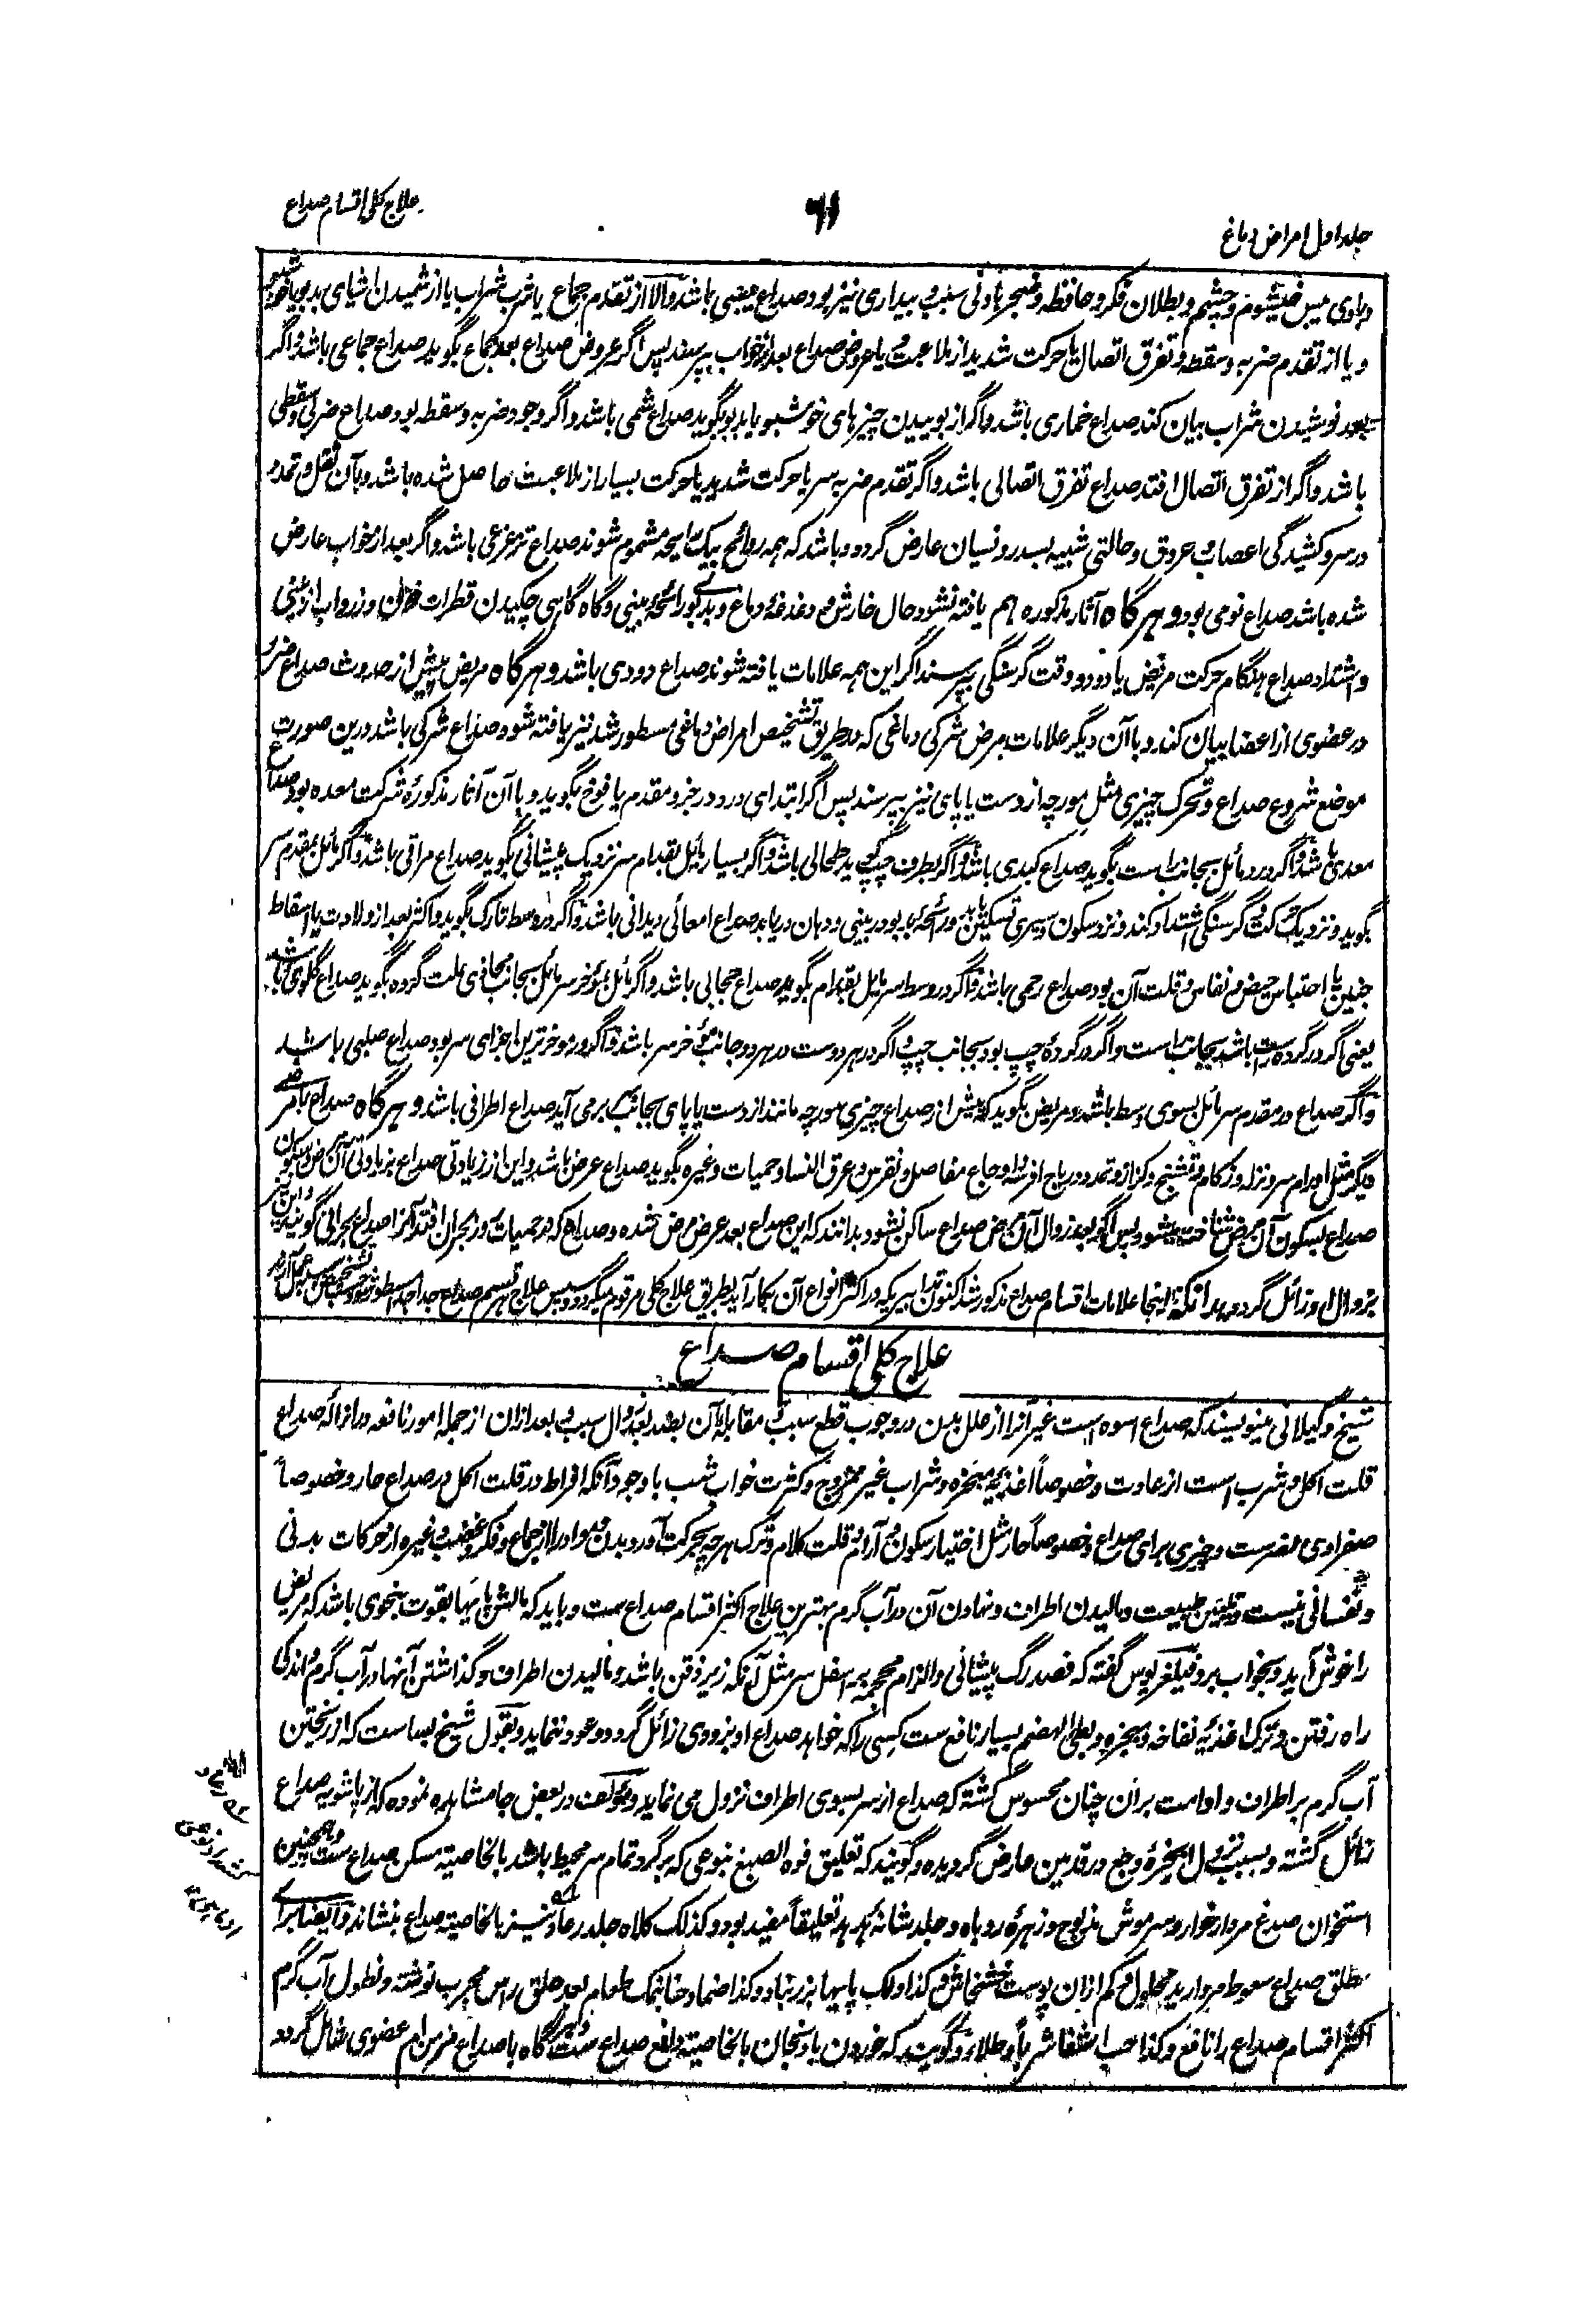 جلد اول امراض دماغ
۶۱
علاج کلی اقسام صداع
خیشوم و چشم و بطلان فکر و حافظه و ضجر بادنی سبب و بیداری نیز بود صداع یبسی باشد والا از تقدم جماع یا شرب شراب یا از شمیدن اشیای بدبو یا خوشبو
و یا از تقدم ضربه و سقطه و تفرق اتصال یا حرکت شدید از ملاعبت و یا عروض صداع بعد از خواب بپرسند پس اگر عروض صداع بعد جماع بگوید صداع جماعی باشد و اگر
بعد نوشیدن شراب بیان کند صداع خماری باشد و اگر از بوییدن چیزهای خوشبو یا بدبو بگوید صداع شمی باشد و اگر وجود ضربه و سقطه بود صداع ضربی و سقطی
باشد و اگر از تفرق اتصال افتد صداع تفرق اتصالی باشد و اگر تقدم ضربه سر یا حرکت شدید یا حرکت بسیار از ملاعبت حاصل شده باشد و بآن ثقل و تمدد
در سر و کشیدگی اعصاب و عروق و حالتی شبیه بسدر و نسیان عارض گردد و باشد که همه روائح بیک رایحه مشموم شوند صداع تزعزعی باشد و اگر بعد از خواب عارض
شده باشد صداع نومی بود و هرگاه آثار مذکوره هم یافته نشود حال خارش و دغدغهٔ دماغ و بدبوی رائحهٔ بینی و گاه گاهی چکیدن قطرات خون و زرداب از بینی
و اشتداد صداع هنگام حرکت مریض یا دود و وقت گرسنگی بپرسند اگر این همه علامات یافته شوند صداع دودی باشد و هرگاه مریض پیش از حدوث صداع ضرر
در عضوی از اعضا بیان کند و باآن دیگر علامات مرض شرکی دماغی که در طریق تشخیص امراض دماغی مسطور شد نیز یافته شود صداع شرکی باشد درین صورت
موضع شروع صداع و تحرک چیزی مثل مورچه از دست یا پای نیز بپرسند پس اگر ابتدای درد در جزو مقدم یافوخ بگوید و باآن آثار مذکورهٔ شرکت معده بود صداع
معدی باشد و اگر درد مائل بجانب راست بگوید صداع کبدی باشد و اگر بطرف چپ گوید طحالی باشد و اگر بسیار مائل بقدام سر نزدیک پیشانی بگوید صداع مراقی باشد و اگر مائل بمقدم سر
بگوید و نزدیک حرکت و گرسنگی اشتداد کند و نزد سکون و سیری تسکین یابد و رائحهٔ بدبو در بینی و دهان دریابد صداع امعائی دیدانی باشد و اگر در وسط تارک بگوید و اکثر بعد از ولادت یا اسقاط
جنین یا احتباس حیض و نفاس و قلت آن بود صداع رحمی باشد و اگر در وسط سر مایل بقدام بگوید صداع حجابی باشد و اگر مائل بمؤخر سر مائل بجانب محاذی علت گرده بگوید صداع کلوی باشد
یعنی اگر در گرده راست باشد بجانب راست و اگر در گردهٔ چپ بود بجانب چپ و اگر در هر دوست در هر دو جانب مؤخر سر باشد و اگر در مؤخرترین اجزای سر بود صداع صلبی باشد
و اگر صداع در مقدم سر مائل بسوی وسط باشد و مریض بگوید که پیش از صداع چیزی مورچه مانند از دست یا پای بجانب سر برمی آید صداع اطرافی باشد و هرگاه صداع با مرضی
دیگر مثل اورام سر و نزله و زکام و تشنج و کزاز و تمدد و ریاح افرسه و اوجاع مفاصل و نقرس و عرق النسا و حمیات و غیره بگوید صداع عرض باشد و این از زیادتی صداع بزیادتی آن مرض و سکون
صداع بسکون آن مرض شناخته میشود پس اگر بعد زوال آن مرض صداع ساکن نشود بدانند که این صداع بعد عرض مرض شده و صداع که در حمیات روز بحران افتد آنرا صداع بحرانی گویند و این نیز
بزوال او زائل گردد بدانکه اینجا علامات اقسام صداع مذکور شد اکنون تدابیریکه در اکثر انواع آن بکار آید بطریق علاج کلی مرقوم میگردد و سپس علاج هر قسم صداع جدا جدا مسطور شود
علاج کلی اقسام صداع
شیخ و گیلانی مینویسند که صداع اسوه است غیر آنرا از علل بدن در وجوب قطع سبب و مقابلهٔ آن بضد بعد زوال سبب و بعد ازان از جمله امور نافعه در ازاله صداع
قلت اکل و شرب است از عادت و خصوصاً اغذیهٔ مبخره و شراب غیر ممزوج و کثرت خواب شب با وجود آنکه افراط در قلت اکل در صداع حار و خصوصاً
صفراوی مضر ست و چیزی برای صداع و خصوصاً حار مثل اختیار سکون و آرام و قلت کلام و ترک هر چه بحرکت آورد بدن و مواد را از جماع و فکر و غضب و غیره از حرکات بدنی
و نفسانی نیست و تلیین طبیعت و مالیدن اطراف و نهادن آن در آب گرم بهترین علاج اکثر اقسام صداع ست و باید که مالش پایها بقوت بنحوی باشد که مریض
را خوش آید و بخواب برود فیلغریوس گفته که فصد رگ پیشانی و الزام محجمه بر اسفل سر مثل آنکه زیر ذقن باشد و مالیدن اطراف و گذاشتن آنها در آب گرم و اندکی
راه رفتن و ترک اغذیهٔ نفاخه و مبخره و بطی الهضم بسیار نافع ست کسی را که خواهد صداع او بزودی زائل گردد و عود ننماید و بقول شیخ بساست که از ریختن
آب گرم بر اطراف و ادامت بران چنان محسوس گشته که صداع از سر بسوی اطراف نزول می نماید و مؤلف در بعض جا مشاهده نموده که از پاشویه صداع
زائل گشته و بسبب نزول ابخره وجع در قدمین عارض گردیده و گویند که تعلیق فوه الصبغ بنوعی که بر گرد تمام سر محیط باشد بالخاصیته مسکن صداع ست و همچنین
استخوان صدغ مردارخوار و سر موش مذبوح و زهرهٔ روباه و جلد شانهٔ هدهد تعلیقاً مفید بود و کذلک کلاه جلد رعاد نیز بالخاصیته صداع بنشاند و ایضا برای
مطلق صداع سعوط مروارید محلول و کم ازان پوست خشخاش و کذا دلک پایها بزرنباد و کذا ضماد حنا بنمک طعام بعد حلق راس مجرب نوشته و نطول آب گرم
اکثر اقسام صداع را نافع و کذا حب الشفا شرباً و طلاءً و گویند که خوردن بادنجان بالخاصیته دافع صداع ست و هرگاه با صداع مزمن الم عضوی شامل گردد